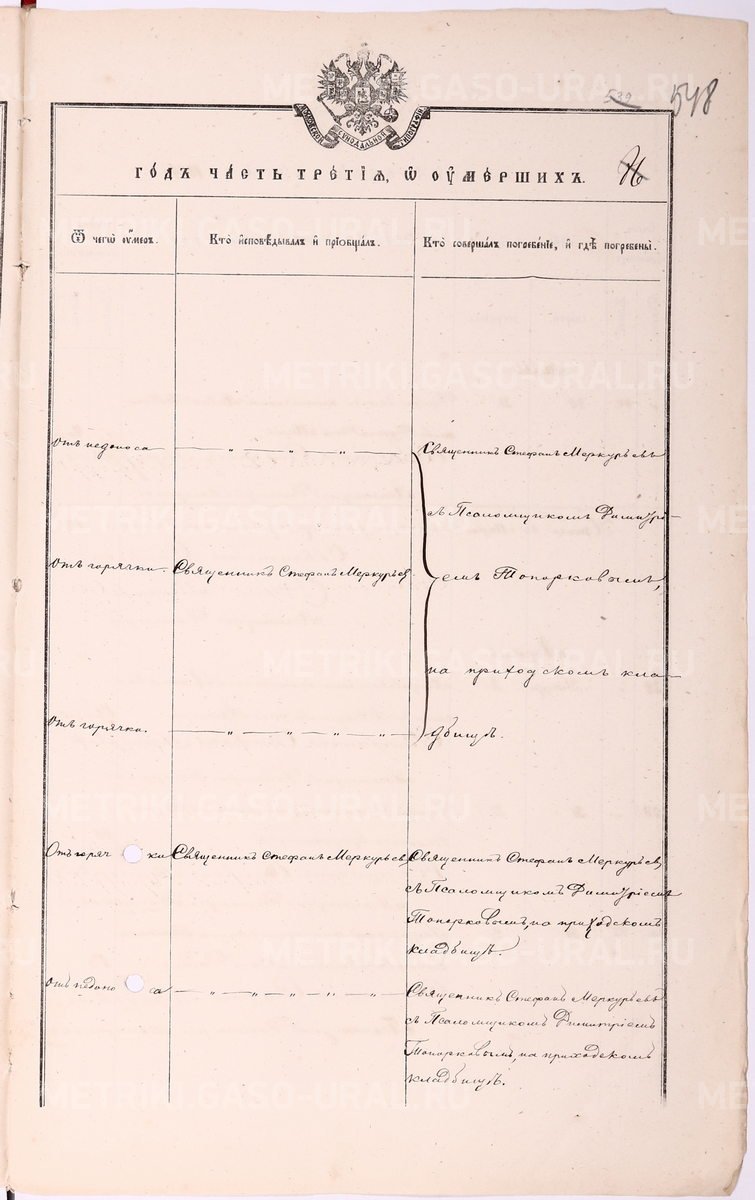 539
548
МОСКОВСКОЙ СѴНОДАЛЬНОЙ ТИПОГРАФІИ
ГО́ДЪ ЧА́СТЬ ТРЕ́ТІѦ, Ѿ ОУ҆МЕ́РШИХЪ. 76
Ѿ чегѡ̀ оу҆́меръ.
Кто̀ и҆сповѣ́дывалъ и҆ прїѡбща́лъ.
Кто̀ соверша́лъ погребе́нїе, и҆ гдѣ̀ погребены̀.
Отъ недоноса
— „ — „ — „ —
Священникъ Стефанъ Меркурьевъ
съ Псаломщикомъ Димитрі-
Отъ горячки.
Священникъ Стефанъ Меркурьев.
емъ Топорковымъ,
на приходскомъ кла-
Отъ горячки.
— „ — „ — „ — „ —
дбищѣ.
Отъ горячки
Священникъ Стефанъ Меркурьев,
Священникъ Стефанъ Меркурьев,
съ Псаломщикомъ Димитріемъ
Топорковымъ, на приходскомъ
кладбищѣ.
Отъ недоноса
— „ — „ — „ — „ — „ —
Священникъ Стефанъ Меркурьевъ
съ Псаломщикомъ Димитріемъ
Топорковымъ, на приходскомъ
кладбищѣ.
METRIKI.GASO-URAL.RU